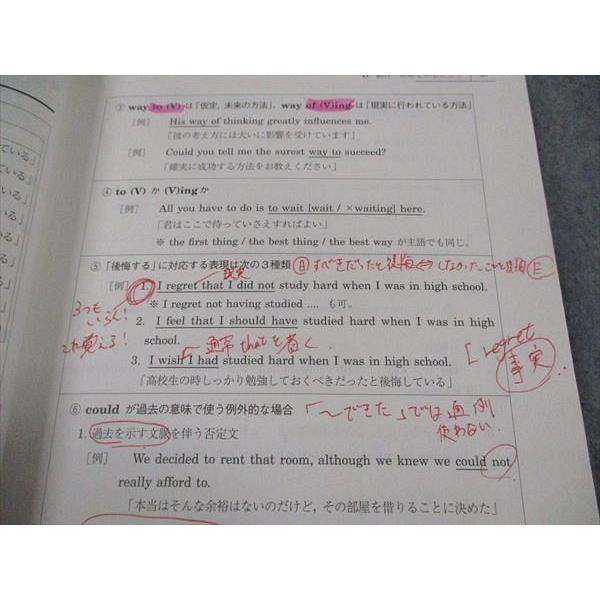 ③ way to (V) は「仮定，未来の方法」，way of (V)ing は「現実に行われている方法」
［例］ His way of thinking greatly influences me.
「彼の考え方には大いに影響を受けています」
［例］ Could you tell me the surest way to succeed?
「確実に成功する方法をお教えください」
④ to (V) か (V)ing か
［例］ All you have to do is to wait [wait / ×waiting] here.
「君はここで待っていさえすればよい」
※ the first thing / the best thing / the best way が主語でも同じ。
⑤「後悔する」に対応する表現は次の3種類
Ⓐ すべきだったと後悔 ⇔ しなかったことを後悔 Ⓔ
現実
［例］ 1. I regret that I did not study hard when I was in high school.
※ I regret not having studied .... も可。
3つも
これ覚える!
2. I feel that I should have studied hard when I was in high
school.
通常 thatを省く
3. I wish I had studied hard when I was in high school.
「高校生の時しっかり勉強しておくべきだったと後悔している」
regret
事実
⑥ could が過去の意味で使う例外的な場合
「～できた」では通例
使わない.
1. 過去を示す文脈を伴う否定文
［例］ We decided to rent that room, although we knew we could not
really afford to.
「本当はそんな余裕はないのだけど，その部屋を借りることに決めた」